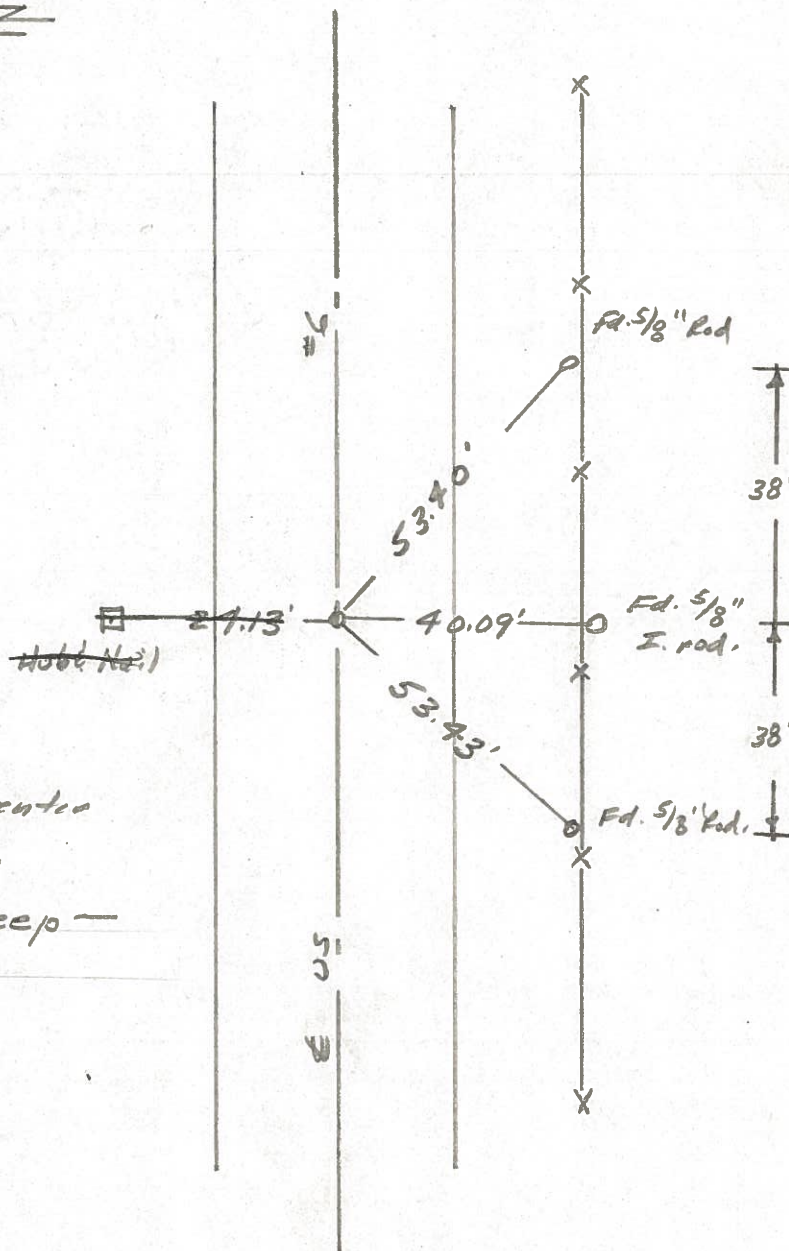 Fd. 5/8" Rod
38'
53.40'
24.13'
40.09'
Fd. 5/8"
I. rod.
Hub & Nail
53.43'
38'
Fd. 5/8" Rod.